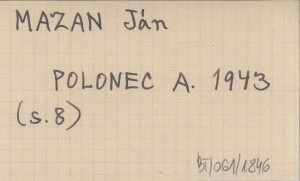 MAZAN Ján
POLONEC A. 1943
(s.8)
BI/061/1846